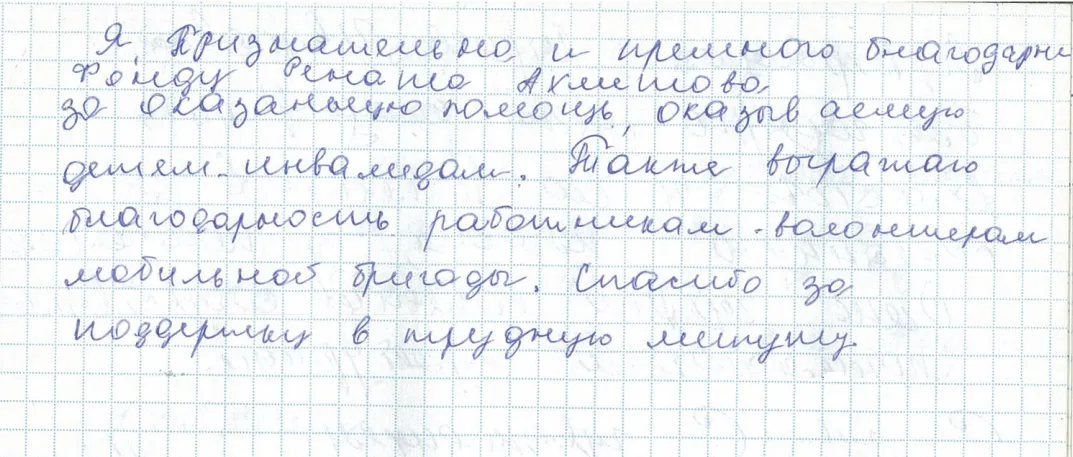 Я Признательна и премного благодарна
Фонду Рената Ахметова
за оказанную помощь, оказываемую
детям-инвалидам. Также выражаю
благодарность работникам-волонтерам
мобильной бригады. Спасибо за
поддержку в трудную минуту